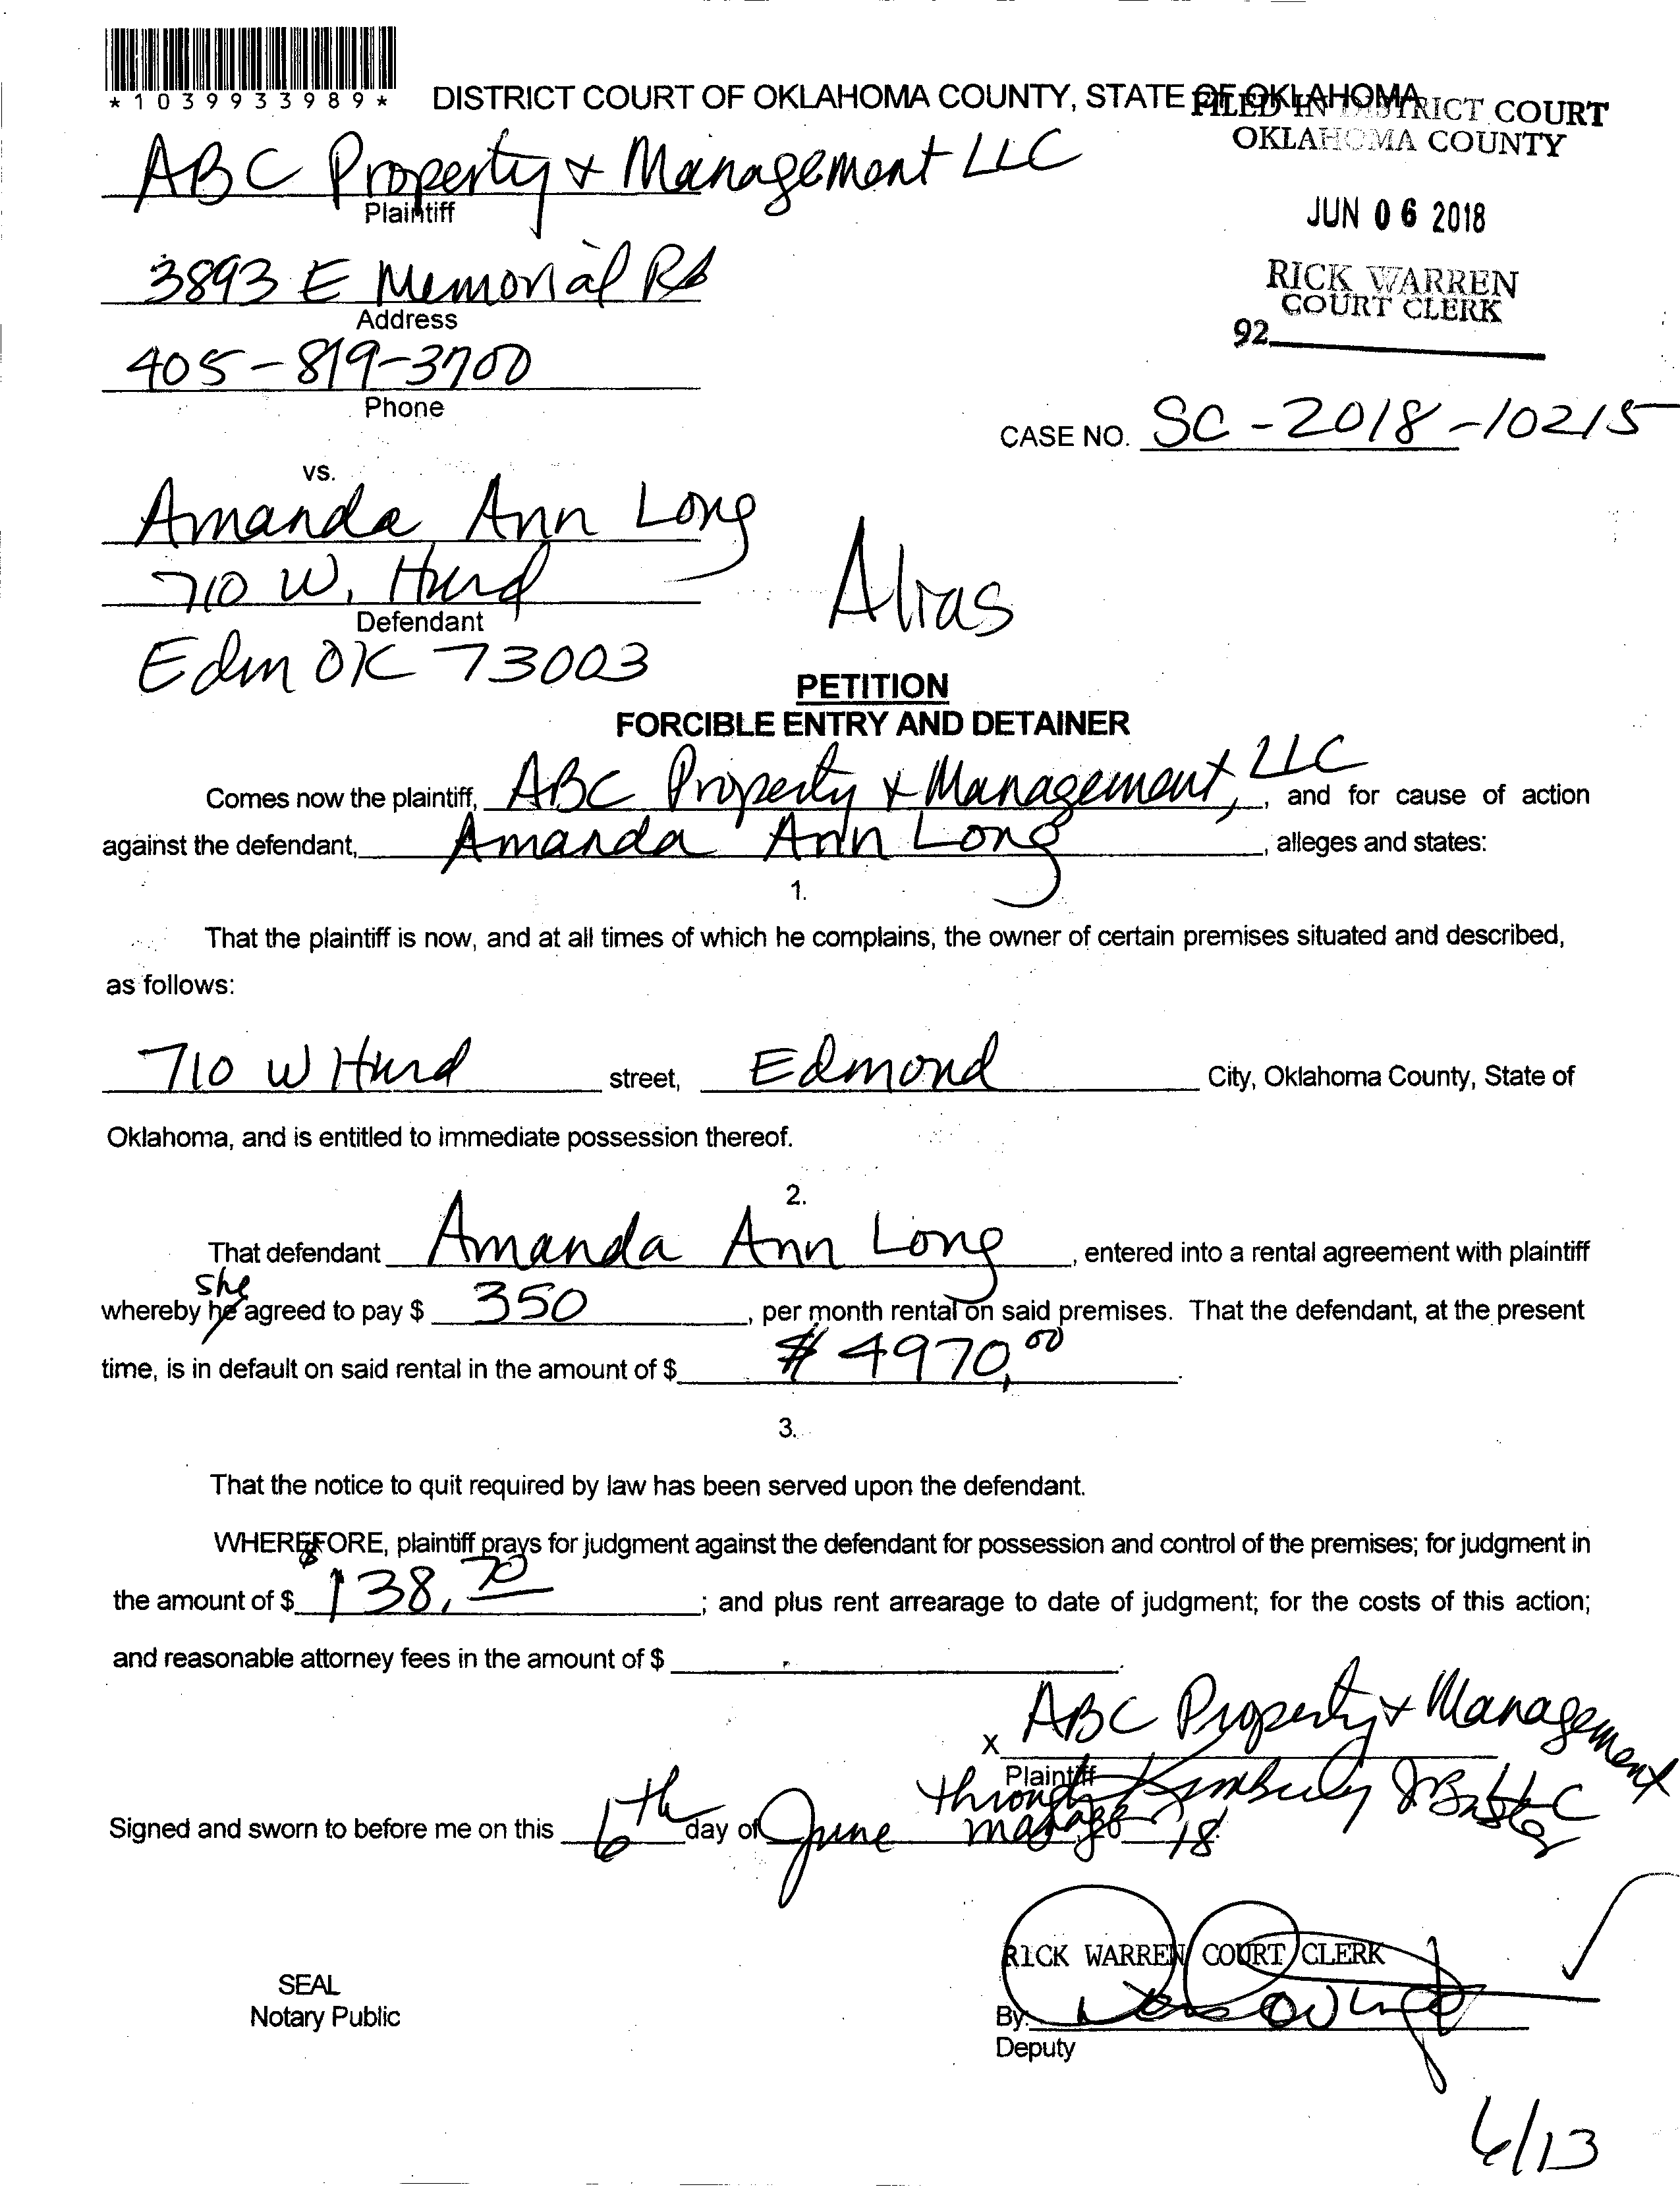 *1039933989*
DISTRICT COURT OF OKLAHOMA COUNTY, STATE OF OKLAHOMA
FILED IN DISTRICT COURT
OKLAHOMA COUNTY
JUN 06 2018
RICK WARREN
COURT CLERK
92
ABC Property & Management LLC
Plaintiff
3893 E Memorial Rd
Address
405-819-3700
Phone
CASE NO. SC-2018-10215
vs.
Amanda Ann Long
710 W. Hurd
Defendant
Edm OK 73003
Alias
PETITION
FORCIBLE ENTRY AND DETAINER
Comes now the plaintiff, ABC Property & Management, LLC, and for cause of action
against the defendant, Amanda Ann Long, alleges and states:
1.
That the plaintiff is now, and at all times of which he complains, the owner of certain premises situated and described,
as follows:
710 W Hurd street, Edmond City, Oklahoma County, State of
Oklahoma, and is entitled to immediate possession thereof.
2.
That defendant Amanda Ann Long, entered into a rental agreement with plaintiff
she
whereby he agreed to pay $ 350, per month rental on said premises. That the defendant, at the present
time, is in default on said rental in the amount of $ $ 4970.00.
3.
That the notice to quit required by law has been served upon the defendant.
WHEREFORE, plaintiff prays for judgment against the defendant for possession and control of the premises; for judgment in
the amount of $ 138.70; and plus rent arrearage to date of judgment; for the costs of this action;
and reasonable attorney fees in the amount of $
X ABC Property & Management
Plaintiff
through Kimberly J
Signed and sworn to before me on this 6th day of June, 2018.
RICK WARREN COURT CLERK
SEAL
Notary Public
By:
Deputy
6/13